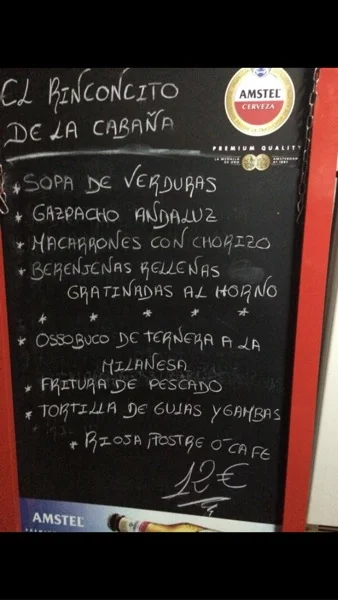 EL RINCONCITO
DE LA CABAÑA
AMSTEL
CERVEZA
PREMIUM QUALITY
* SOPA DE VERDURAS
* GAZPACHO ANDALUZ
* MACARRONES CON CHORIZO
* BERENJENAS RELLENAS
GRATINADAS AL HORNO
* * * * *
* OSSOBUCO DE TERNERA A LA
MILANESA
* FRITURA DE PESCADO
* TORTILLA DE GULAS Y GAMBAS
* RIOJA, POSTRE O CAFE
12€
AMSTEL